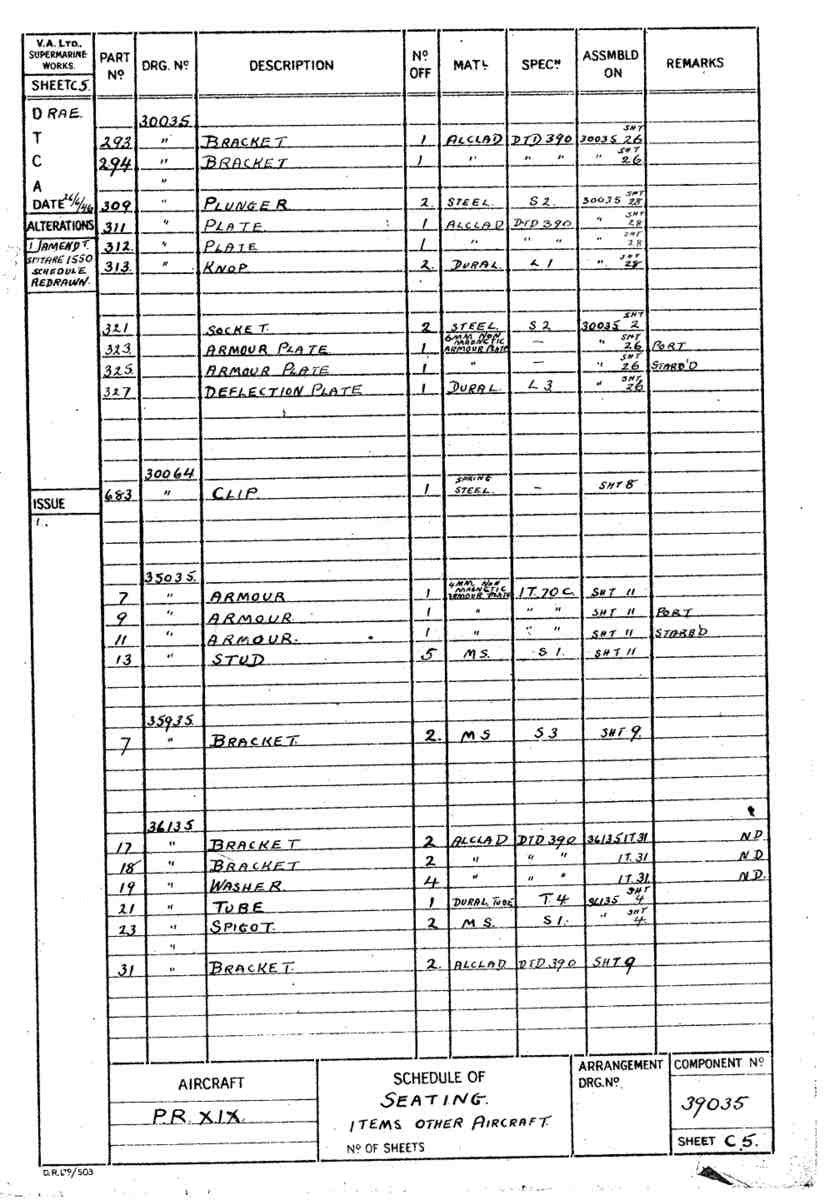 V.A. LTD., SUPERMARINE WORKS. PART Nº DRG. Nº DESCRIPTION Nº OFF MATL SPECN ASSMBLD ON REMARKS
SHEET C5.
D RAE. 30035
T 293 " BRACKET 1 ALCLAD DTD 390 30035 SHT 26
C 294 " BRACKET 1 " " " " SHT 26
A "
DATE 26/6/46 309 " PLUNGER 2 STEEL S2 30035 SHT 28
ALTERATIONS 311 " PLATE 1 ALCLAD DTD 390 " SHT 28
1 AMENDT. 312 " PLATE 1 " " " " SHT 28
SPITFIRE 1550 SCHEDULE REDRAWN. 313 " KNOP 2 DURAL L1 " SHT 28
321 SOCKET. 2 STEEL S2 30035 SHT 2
323 ARMOUR PLATE 1 6MM NON MAGNETIC ARMOUR PLATE — " SHT 26 PORT
325 ARMOUR PLATE 1 " — " SHT 26 STARB'D
327 DEFLECTION PLATE 1 DURAL L3 " SHT 26
30064
683 " CLIP 1 SPRING STEEL. – SHT 8
ISSUE
1.
35035.
7 " ARMOUR 1 4MM NON MAGNETIC ARMOUR PLATE 1T.70 C. SHT 11
9 " ARMOUR. 1 " " " SHT 11 PORT
11 " ARMOUR. 1 " " " SHT 11 STARB'D
13 " STUD 5 MS. S1. SHT 11
35935.
7 " BRACKET. 2. MS S3 SHT 9.
36135
17 " BRACKET 2 ALCLAD DTD 390 36135 1T.31 ND.
18 " BRACKET 2 " " " 1T.31 ND
19 " WASHER. 4 " " " 1T.31 ND.
21 " TUBE 1 DURAL TUBE T.4 36135 SHT 4
23 " SPIGOT. 2 MS. S1. " SHT 4.
"
31 " BRACKET. 2. ALCLAD DTD 390 SHT 9
AIRCRAFT
P.R. XIX.
SCHEDULE OF
SEATING.
ITEMS OTHER AIRCRAFT.
Nº OF SHEETS
ARRANGEMENT DRG. Nº.
COMPONENT Nº
39035
SHEET C.5.
D.R.L°9/503